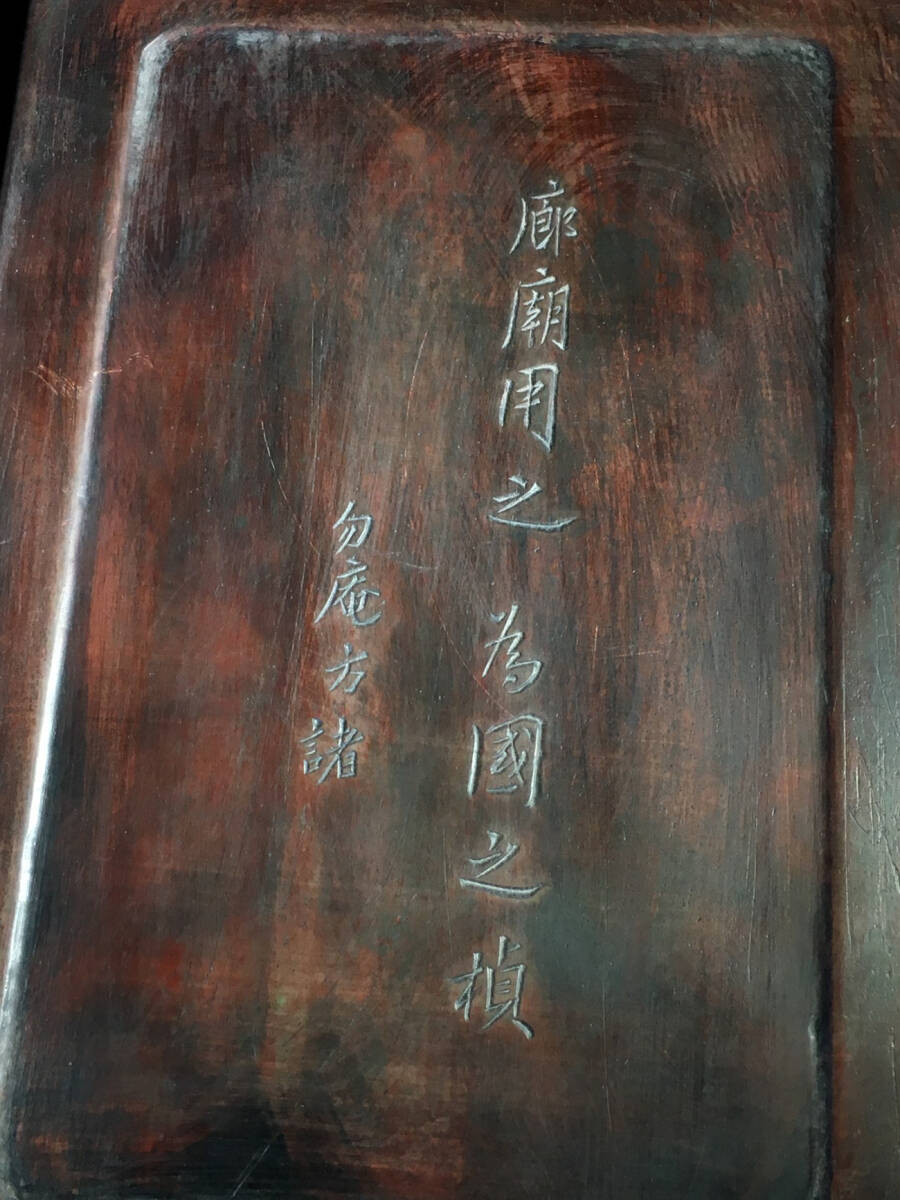 廊廟用之為國之楨
勿庵方諸